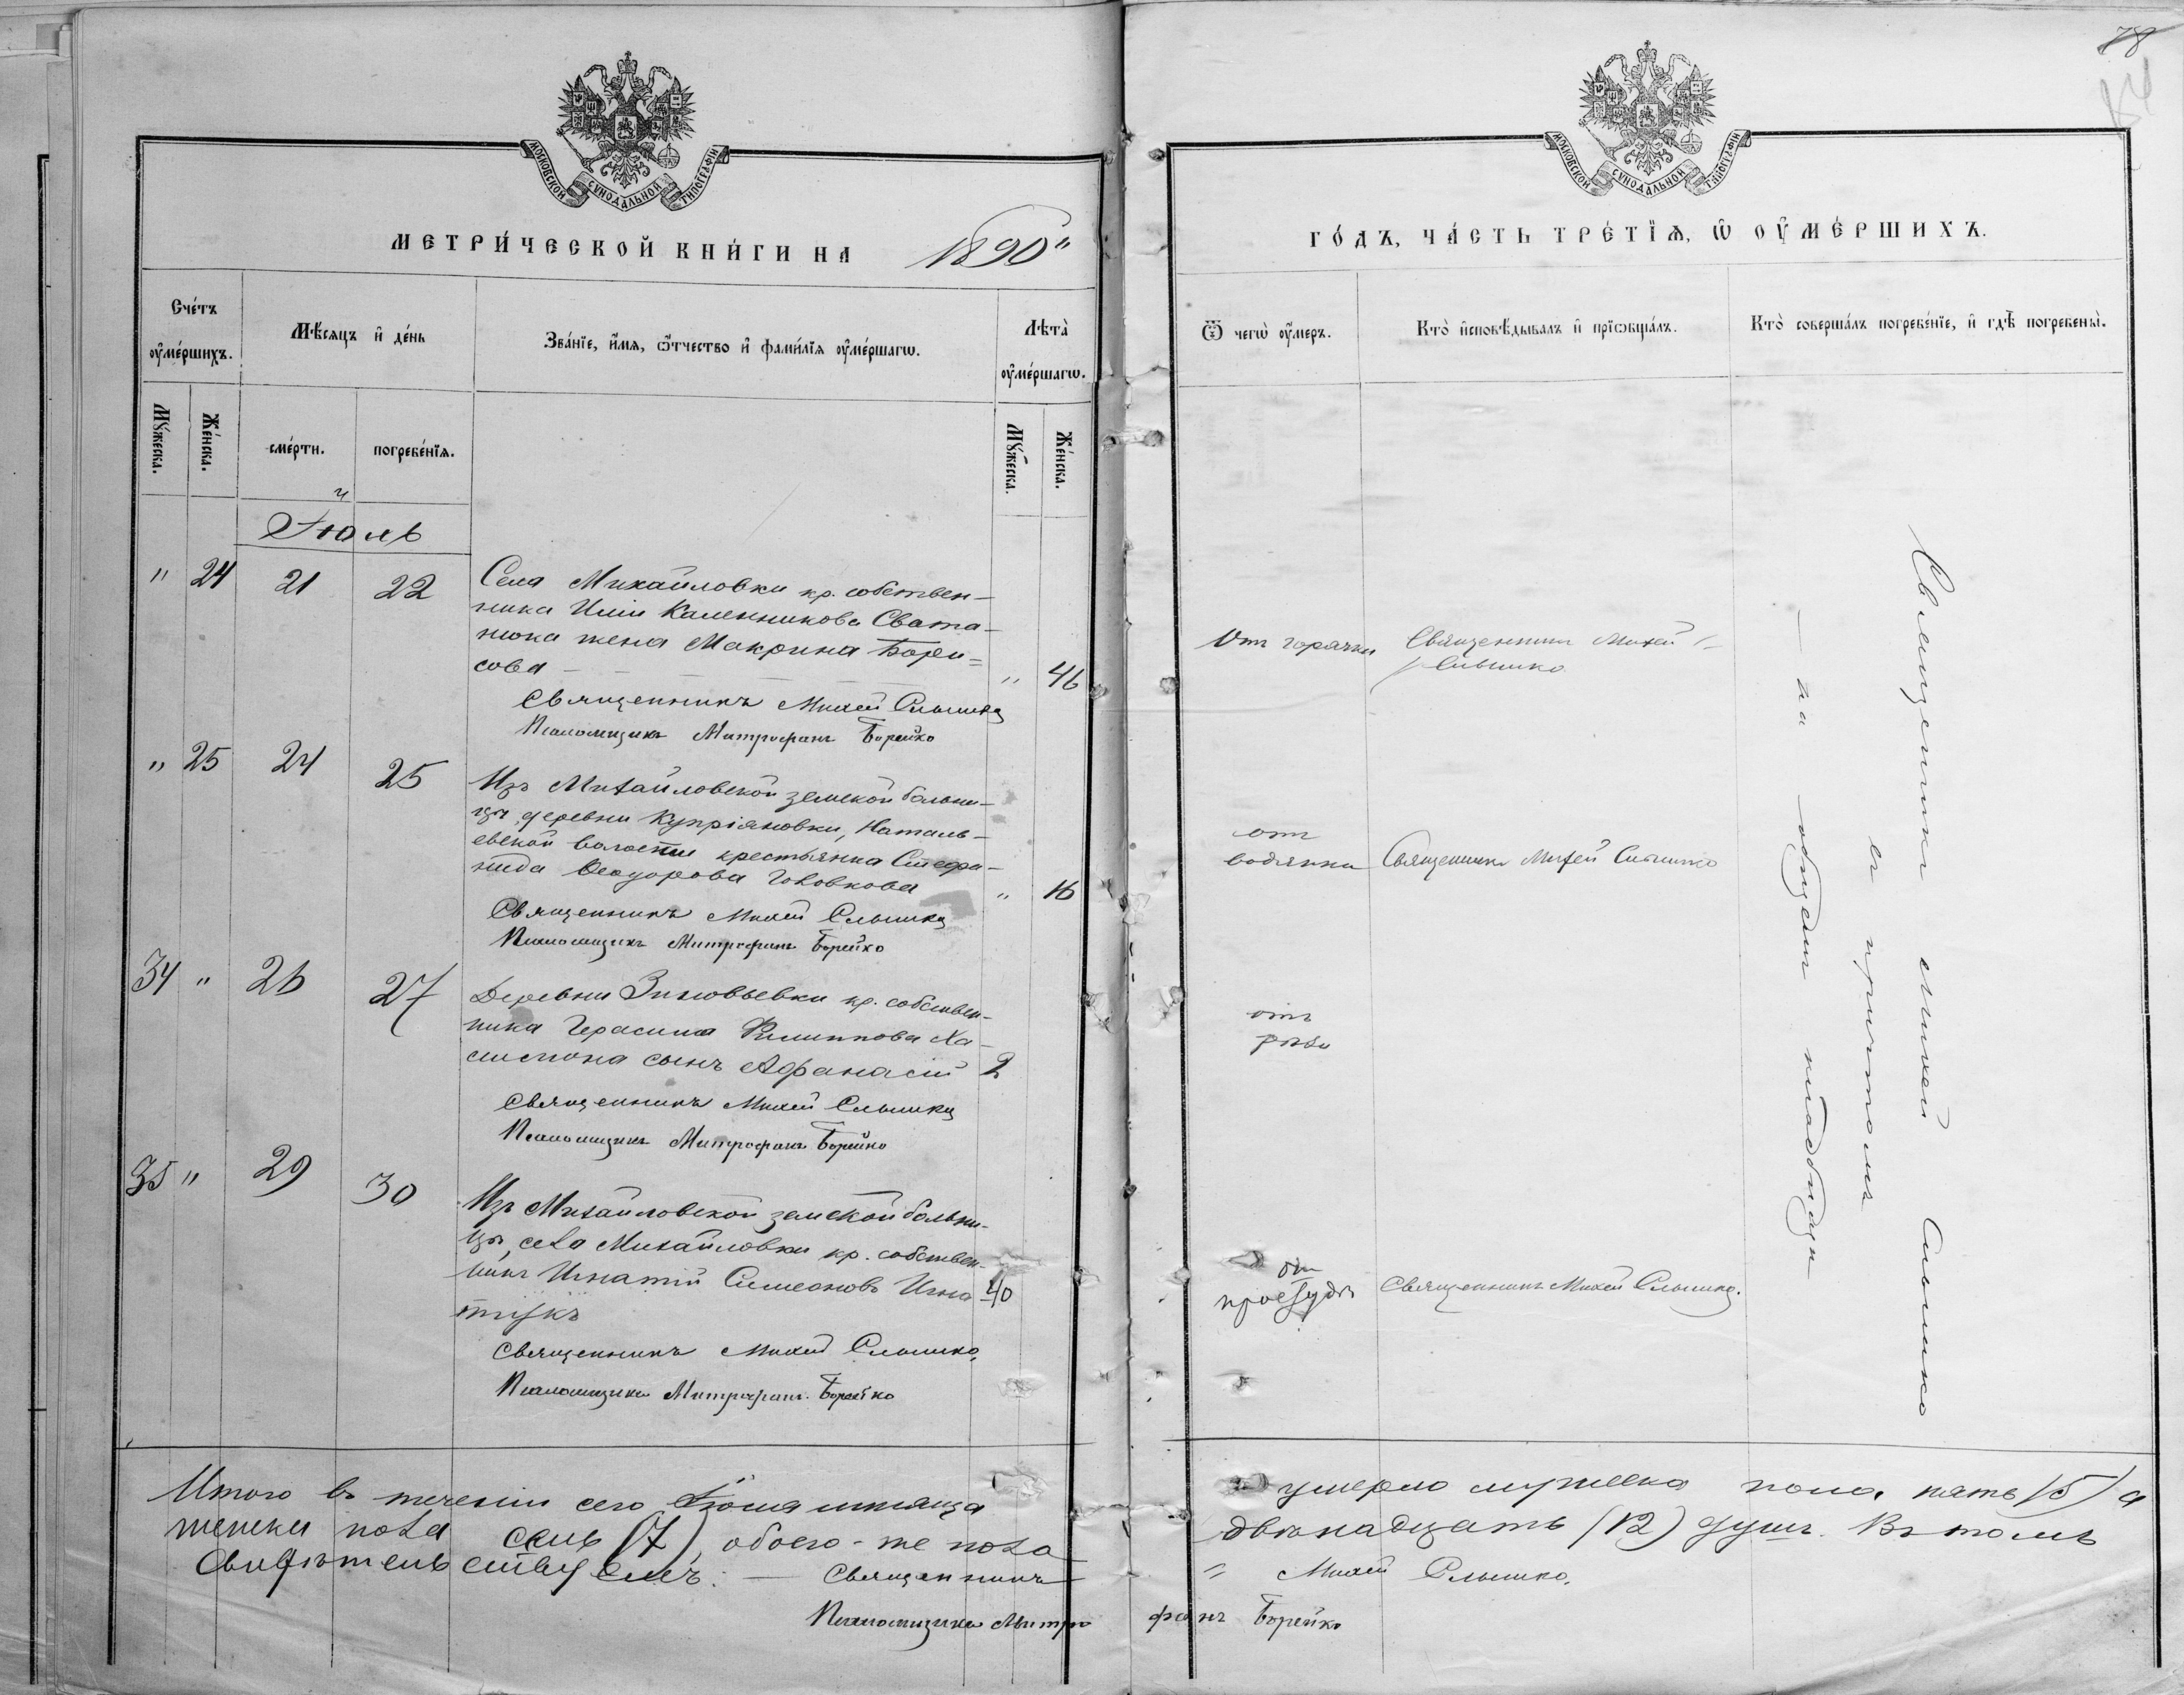 78
МОСКОВСКОЙ СѴНОДАЛЬНОЙ ТИПОГРАФІИ
МОСКОВСКОЙ СѴНОДАЛЬНОЙ ТИПОГРАФІИ
МЕТРИ́ЧЕСКОЙ КНИ́ГИ НА 1890"
ГО́ДЪ, ЧА́СТЬ ТРЕ́ТЇѦ, Ѡ҆ ОУ҆МЕ́РШИХЪ.
Сче́тъ оу҆ме́ршихъ.
Мꙋ́жеска.
Же́нска.
Мѣ́сяцъ и҆ де́нь
сме́рти.
погребе́нїѧ.
Зва́нїе, и҆́мѧ, ѻ҆́тчество и҆ фами́лїѧ оу҆ме́ршагѡ.
Лѣта̀ оу҆ме́ршагѡ.
Мꙋ́жеска.
Же́нска.
Ѿ чегѡ̀ оу҆́меръ.
Кто̀ и҆сповѣ́дывалъ и҆ прїѡбща́лъ.
Кто̀ соверша́лъ погребе́нїе, и҆ гдѣ̀ погребены̀.
Июль
" 24 21 22 Села Михайловки кр. собствен-
ника Иліи Каленникова Свата-
нюка жена Макрина Бори=
сова " 46
Священникъ Михей Слышко
Псаломщикъ Митрофанъ Борейко
Отъ горячки
Священникъ Михей
Слышко
" 25 24 25 Изъ Михайловской земской больни-
цы, деревни Купріяновки, Наталь-
евской волости крестьянка Стефа-
нида Ѳеодорова Головкова " 16
Священникъ Михей Слышко
Псаломщикъ Митрофанъ Борейко
отъ
водянки
Священникъ Михей Слышко
34 " 26 27 Деревни Зиновьевки кр. собствен-
ника Герасима Филиппова Ха-
сынъ Афанасій 2
Священникъ Михей Слышко
Псаломщикъ Митрофанъ Борейко
отъ
35 " 29 30 Изъ Михайловской земской больни-
цы, села Михайловки кр. собствен-
никъ Игнатій Симеоновъ Игна 40
тукъ
Священникъ Михей Слышко.
Псаломщикъ Митрофанъ Борейко
отъ
простуды
Священникъ Михей Слышко.
Священникъ Михей Слышко
съ причтомъ
— на общемъ кладбищѣ
Итого въ теченіи сего Іюля мѣсяца умерло мужеска пола пять (5) а
женска пола семь (7), обоего-же пола двѣнадцать (12) душъ. Въ томъ
свидѣтельствуемъ: — Священникъ Михей Слышко.
Псаломщикъ Митрофанъ Борейко